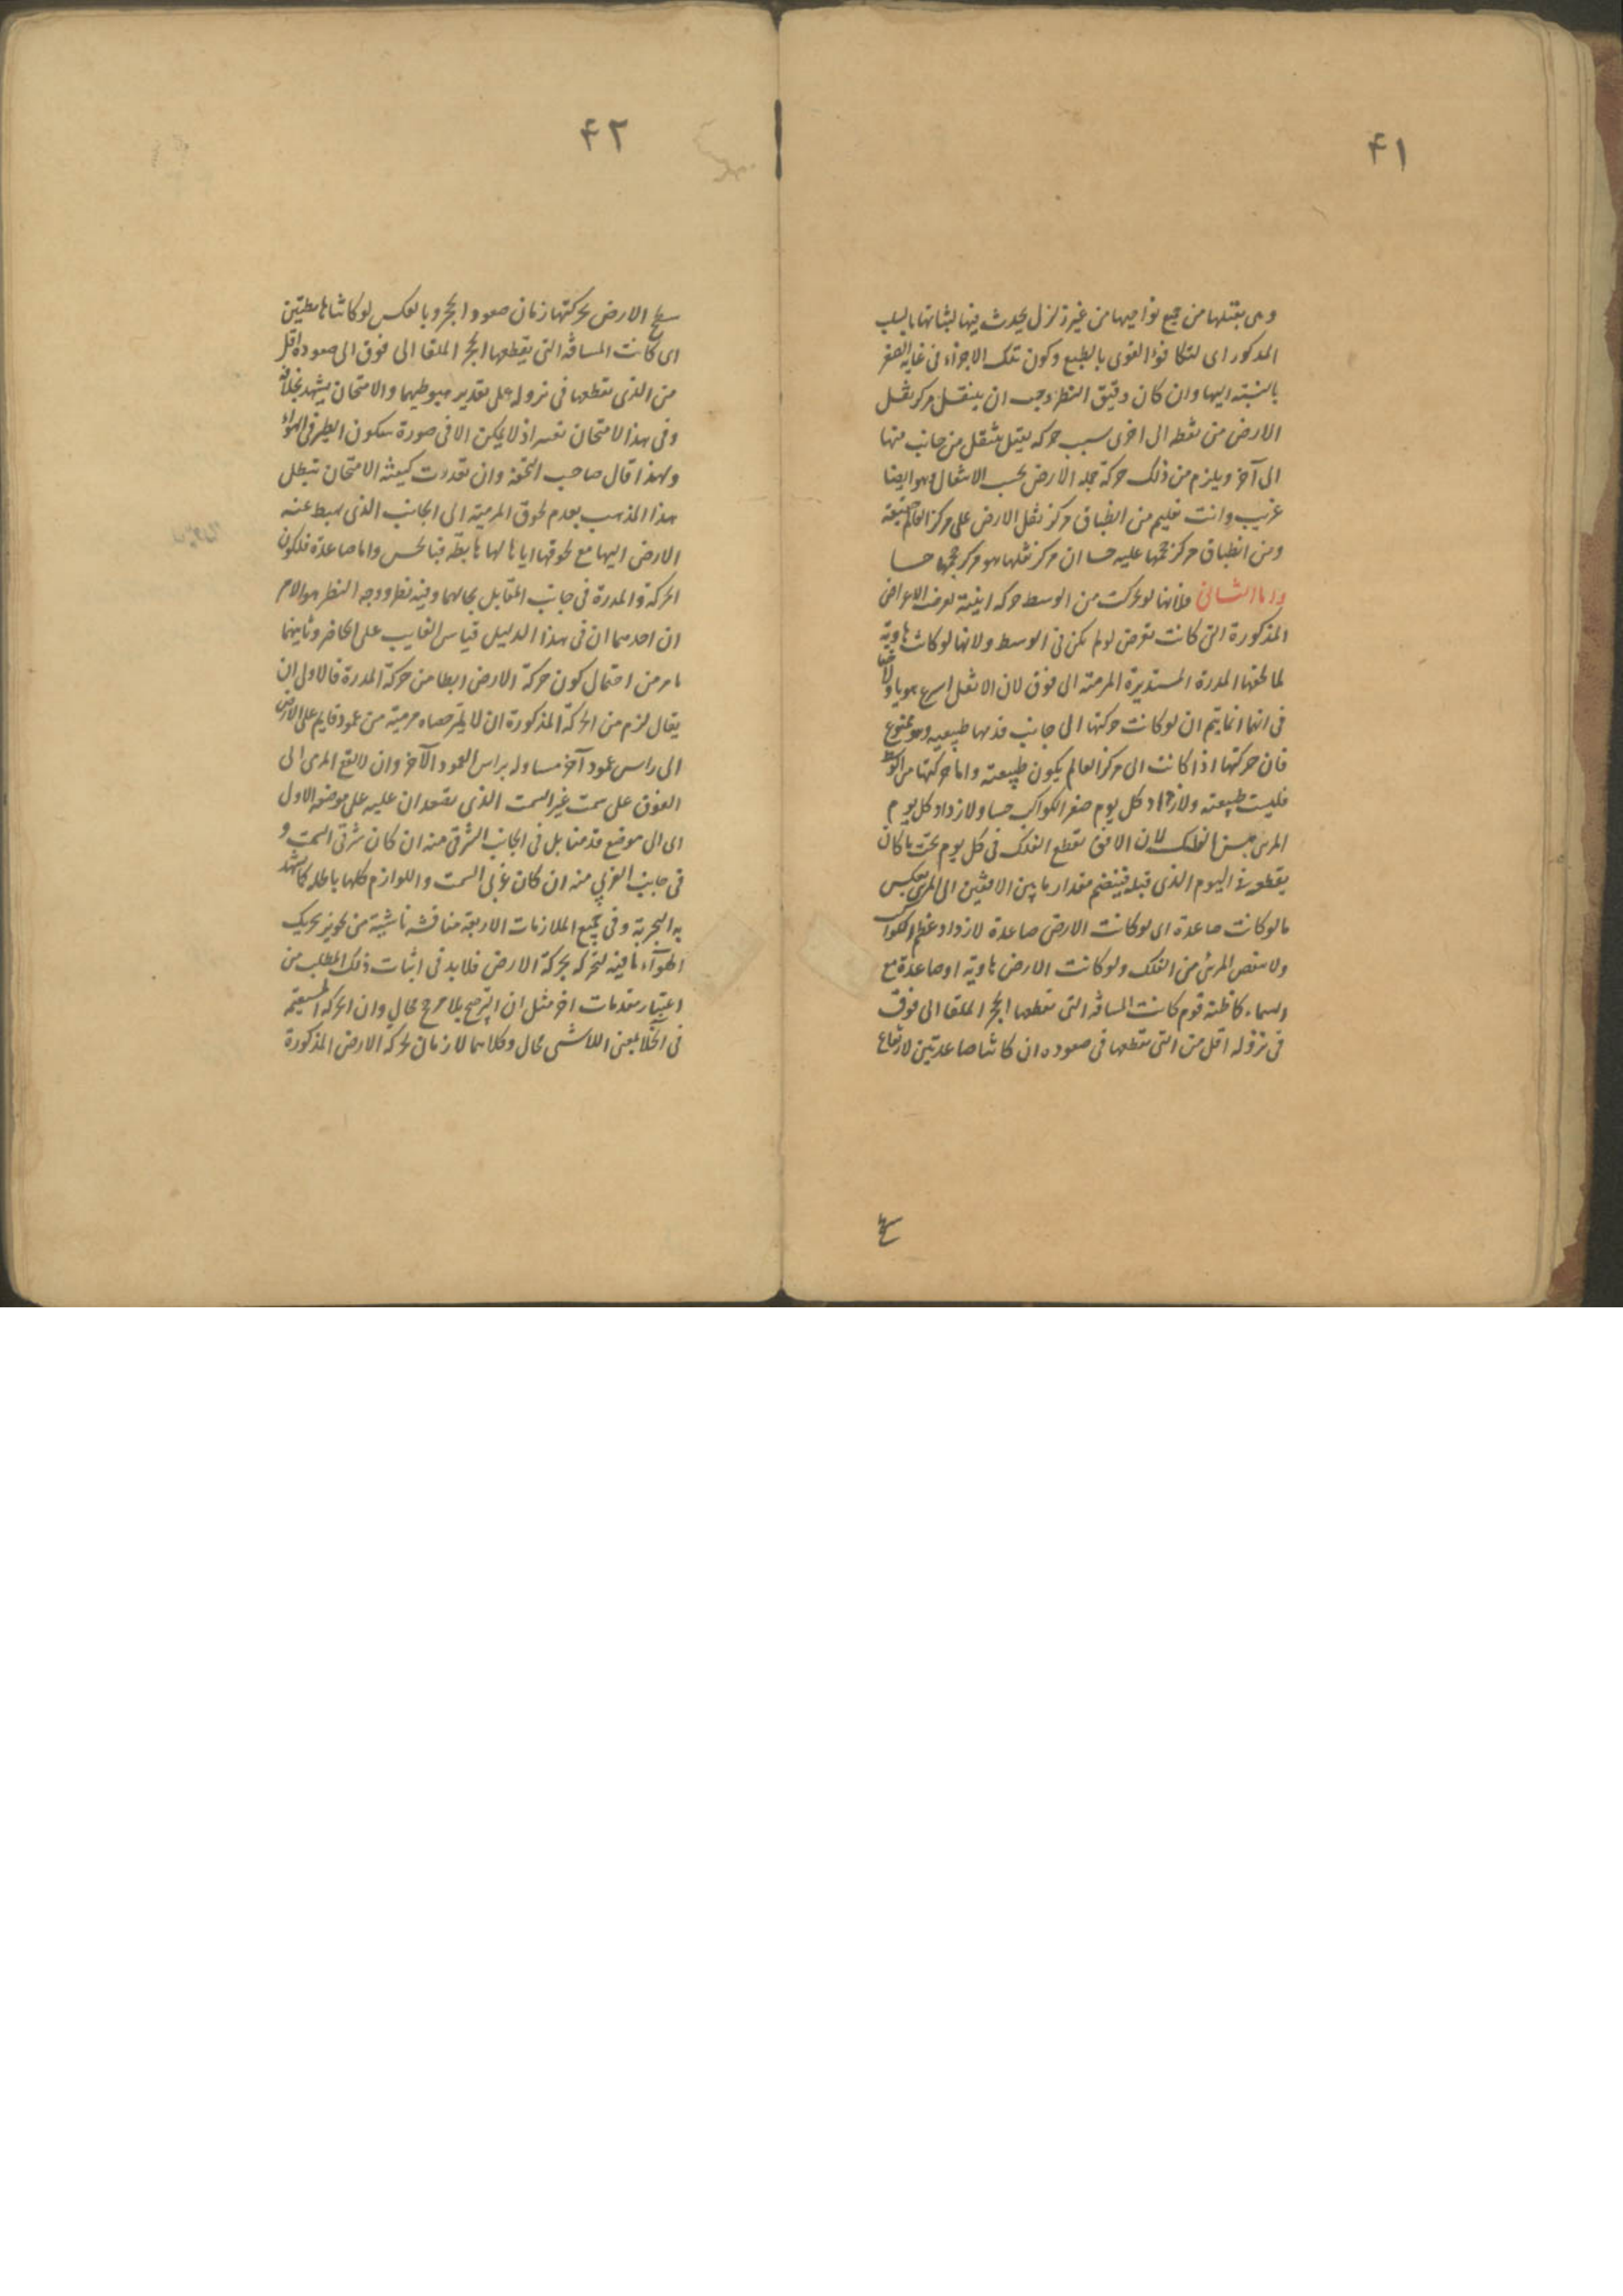 ۴۱
وهى بثقلها من جميع نواحيها من غير تزلزل يحدث فيها لثباتها بالسبب
المذكور اى لتكافؤ القوى بالطبع وكون تلك الاجزاء فى غاية الصغر
بالنسبة اليها وان كان دقيق النظر وجب ان ينتقل مركز ثقل
الارض من نقطه الى اخرى بسبب حركة ثقيل ينتقل من جانب منها
الى آخر ويلزم من ذلك حركة جملة الارض بحسب الانتقال وهو ايضا
غريب وانت عليم من انطباق مركز ثقل الارض على مركز العالم حقيقة
ومن انطباق مركز حجمها عليه حسا ان مركز ثقلها هو مركز حجمها حسا
واما الثانى فلانها لو تحركت من الوسط حركة اينية لعرضت الاعراض
المذكورة التى كانت تعرض لو لم تكن فى الوسط ولانها لو كانت هاوية
لما لحقها المدرة المستديرة المرمية الى فوق لان الاثقل اسرع هويا ولا خفا
فى انها انما يتم ان لو كانت حركتها الى جانب قدمها طبيعية وهو ممنوع
فان حركتها اذا كانت الى مركز العالم يكون طبيعية واما حركتها من الوسط
فليست طبيعية ولازداد كل يوم صغر الكواكب حسا ولازداد كل يوم
المرئى من الفلك لان الافق تقطع الفلك فى كل يوم تحت ما كان
يقطعه فى اليوم الذى قبله فينضم مقدار ما بين الافقين الى المرئى بعكس
ما لو كانت صاعدة اى لو كانت الارض صاعدة لازداد عظم الكواكب
ولانتقص المرئى من الفلك ولو كانت الارض هاوية او صاعدة مع
السماء كما ظنه قوم كانت المسافة التى تقطعها الحجر الملقا الى فوق
فى نزوله اقل من التى تقطعها فى صعوده ان كانتا صاعدتين لارتفاع
سطح
۴۲
سطح الارض بحركتها زمان صعود الحجر وبالعكس لو كانتا هابطتين
اى كانت المسافة التى يقطعها الحجر الملقا الى فوق الى صعوده اقل
من الذى تقطعها فى نزوله على تقدير هبوطيهما والامتحان يشهد بخلافه
وفى هذا الامتحان تعسر اذ لا يمكن الا فى صورة سكون الطير فى الهواء
ولهذا قال صاحب التحفة وان تعذرت كيفية الامتحان تبطل
هذا المذهب بعدم لحوق المرمية الى الجانب الذى هبط عنه
الارض اليها مع لحوقها اياها لها هابطة فبالحس واما صاعدة فلكون
الحركة والمدرة فى جانب المقابل بحالهما وفيه نظر ووجه النظر هو الامر
ان احدهما ان فى هذا الدليل قياس الغايب على الحاضر وثانيهما
ما مر من احتمال كون حركة الارض ابطا من حركة المدرة فالاولى ان
يقال لزم من الحركة المذكورة ان لا يمر حصاه مرمية من عمود قايم على الارض
الى راس عمود آخر مساو له براس العمود الآخر وان لا يقع المرمى الى
الفوق على سمت غير السمت الذى تصعد ان عليه على موضعه الاول
اى الى موضع قد مقابل فى الجانب الشرقى منه ان كان شرقى السمت و
فى جانب الغربى منه ان كان غربى السمت واللوازم كلها باطله كما يشهد
به التجربة وفى جميع الملازمات الاربعة مناقشة ناشية من تجويز تحريك
الهوآء ما فيه لتحركه بحركة الارض فلا بد فى اثبات ذلك المطلب من
اعتبار مقدمات اخر مثل ان الترجيح بلا مرجح محال وان الحركة المستقيمة
فى الخلا بمعنى اللاشى محال وكلاهما لازمان لحركة الارض المذكورة